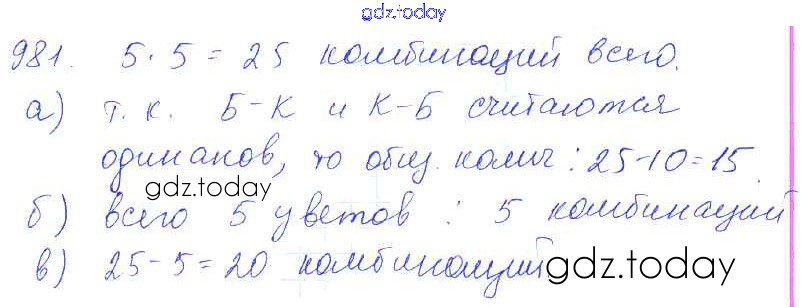 gdz.today
981. 5·5=25 комбинаций всего.
а) т.к. Б-К и К-Б считаются
одинаков, то общ. колич: 25-10=15.
gdz.today
б) всего 5 цветов : 5 комбинаций
в) 25-5=20 комбинаций
gdz.today